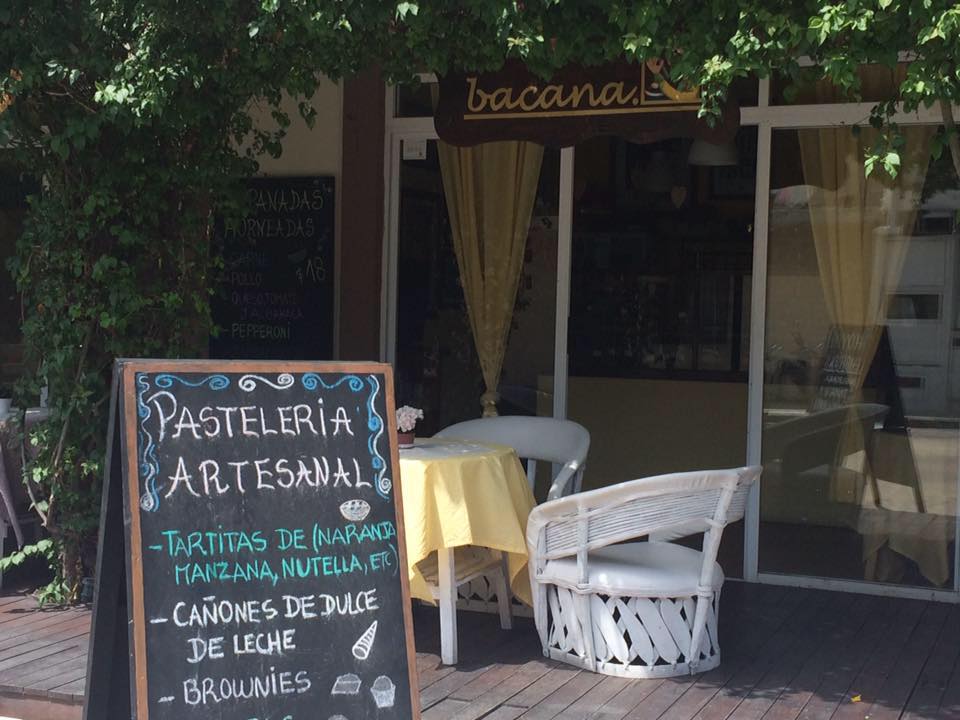 bacana.
PANADAS
HORNEADAS
CARNE
- POLLO
QUESO, TOMATE
- PEPPERONI
$18
PASTELERIA
ARTESANAL
- TARTITAS DE (NARANJA
MANZANA, NUTELLA, ETC)
- CAÑONES DE DULCE
DE LECHE
- BROWNIES